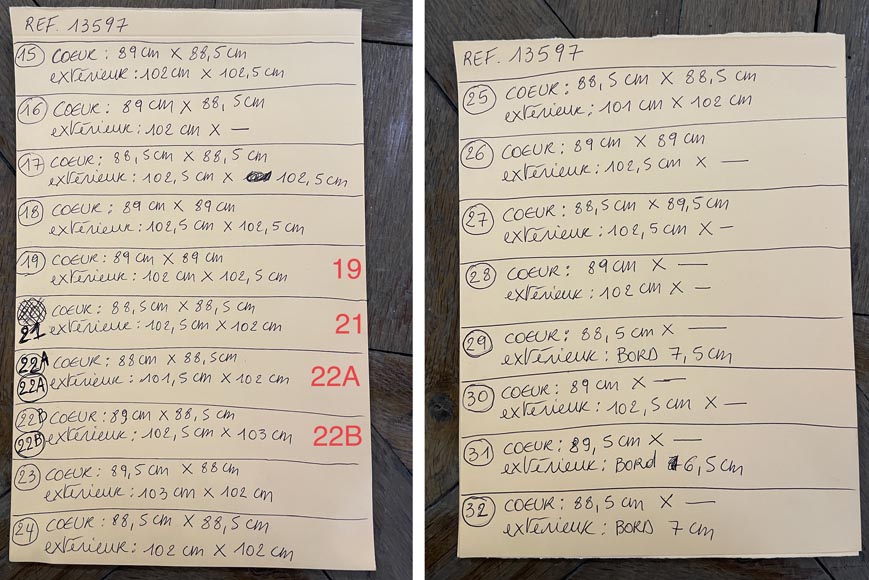 REF. 13597
15 COEUR : 89 cm X 88,5 cm
extérieur : 102 cm X 102,5 cm
16 COEUR : 89 cm X 88,5 cm
extérieur : 102 cm X —
17 COEUR : 88,5 cm X 88,5 cm
extérieur : 102,5 cm X 102,5 cm
18 COEUR : 89 cm X 89 cm
extérieur : 102,5 cm X 102,5 cm
19 COEUR : 89 cm X 89 cm
extérieur : 102 cm X 102,5 cm 19
COEUR : 88,5 cm X 88,5 cm
21 extérieur : 102,5 cm X 102 cm 21
22A COEUR : 88 cm X 88,5 cm
22A extérieur : 101,5 cm X 102 cm 22A
22B COEUR : 89 cm X 88,5 cm
22B extérieur : 102,5 cm X 103 cm 22B
23 COEUR : 89,5 cm X 88 cm
extérieur : 103 cm X 102 cm
24 COEUR : 88,5 cm X 88,5 cm
extérieur : 102 cm X 102 cm
REF. 13597
25 COEUR : 88,5 cm X 88,5 cm
extérieur : 101 cm X 102 cm
26 COEUR : 89 cm X 89 cm
extérieur : 102,5 cm X —
27 COEUR : 88,5 cm X 89,5 cm
extérieur : 102,5 cm X —
28 COEUR : 89 cm X —
extérieur : 102 cm X —
29 COEUR : 88,5 cm X —
extérieur : BORD 7,5 cm
30 COEUR : 89 cm X —
extérieur : 102,5 cm X —
31 COEUR : 89,5 cm X —
extérieur : BORD 6,5 cm
32 COEUR : 88,5 cm X —
extérieur : BORD 7 cm